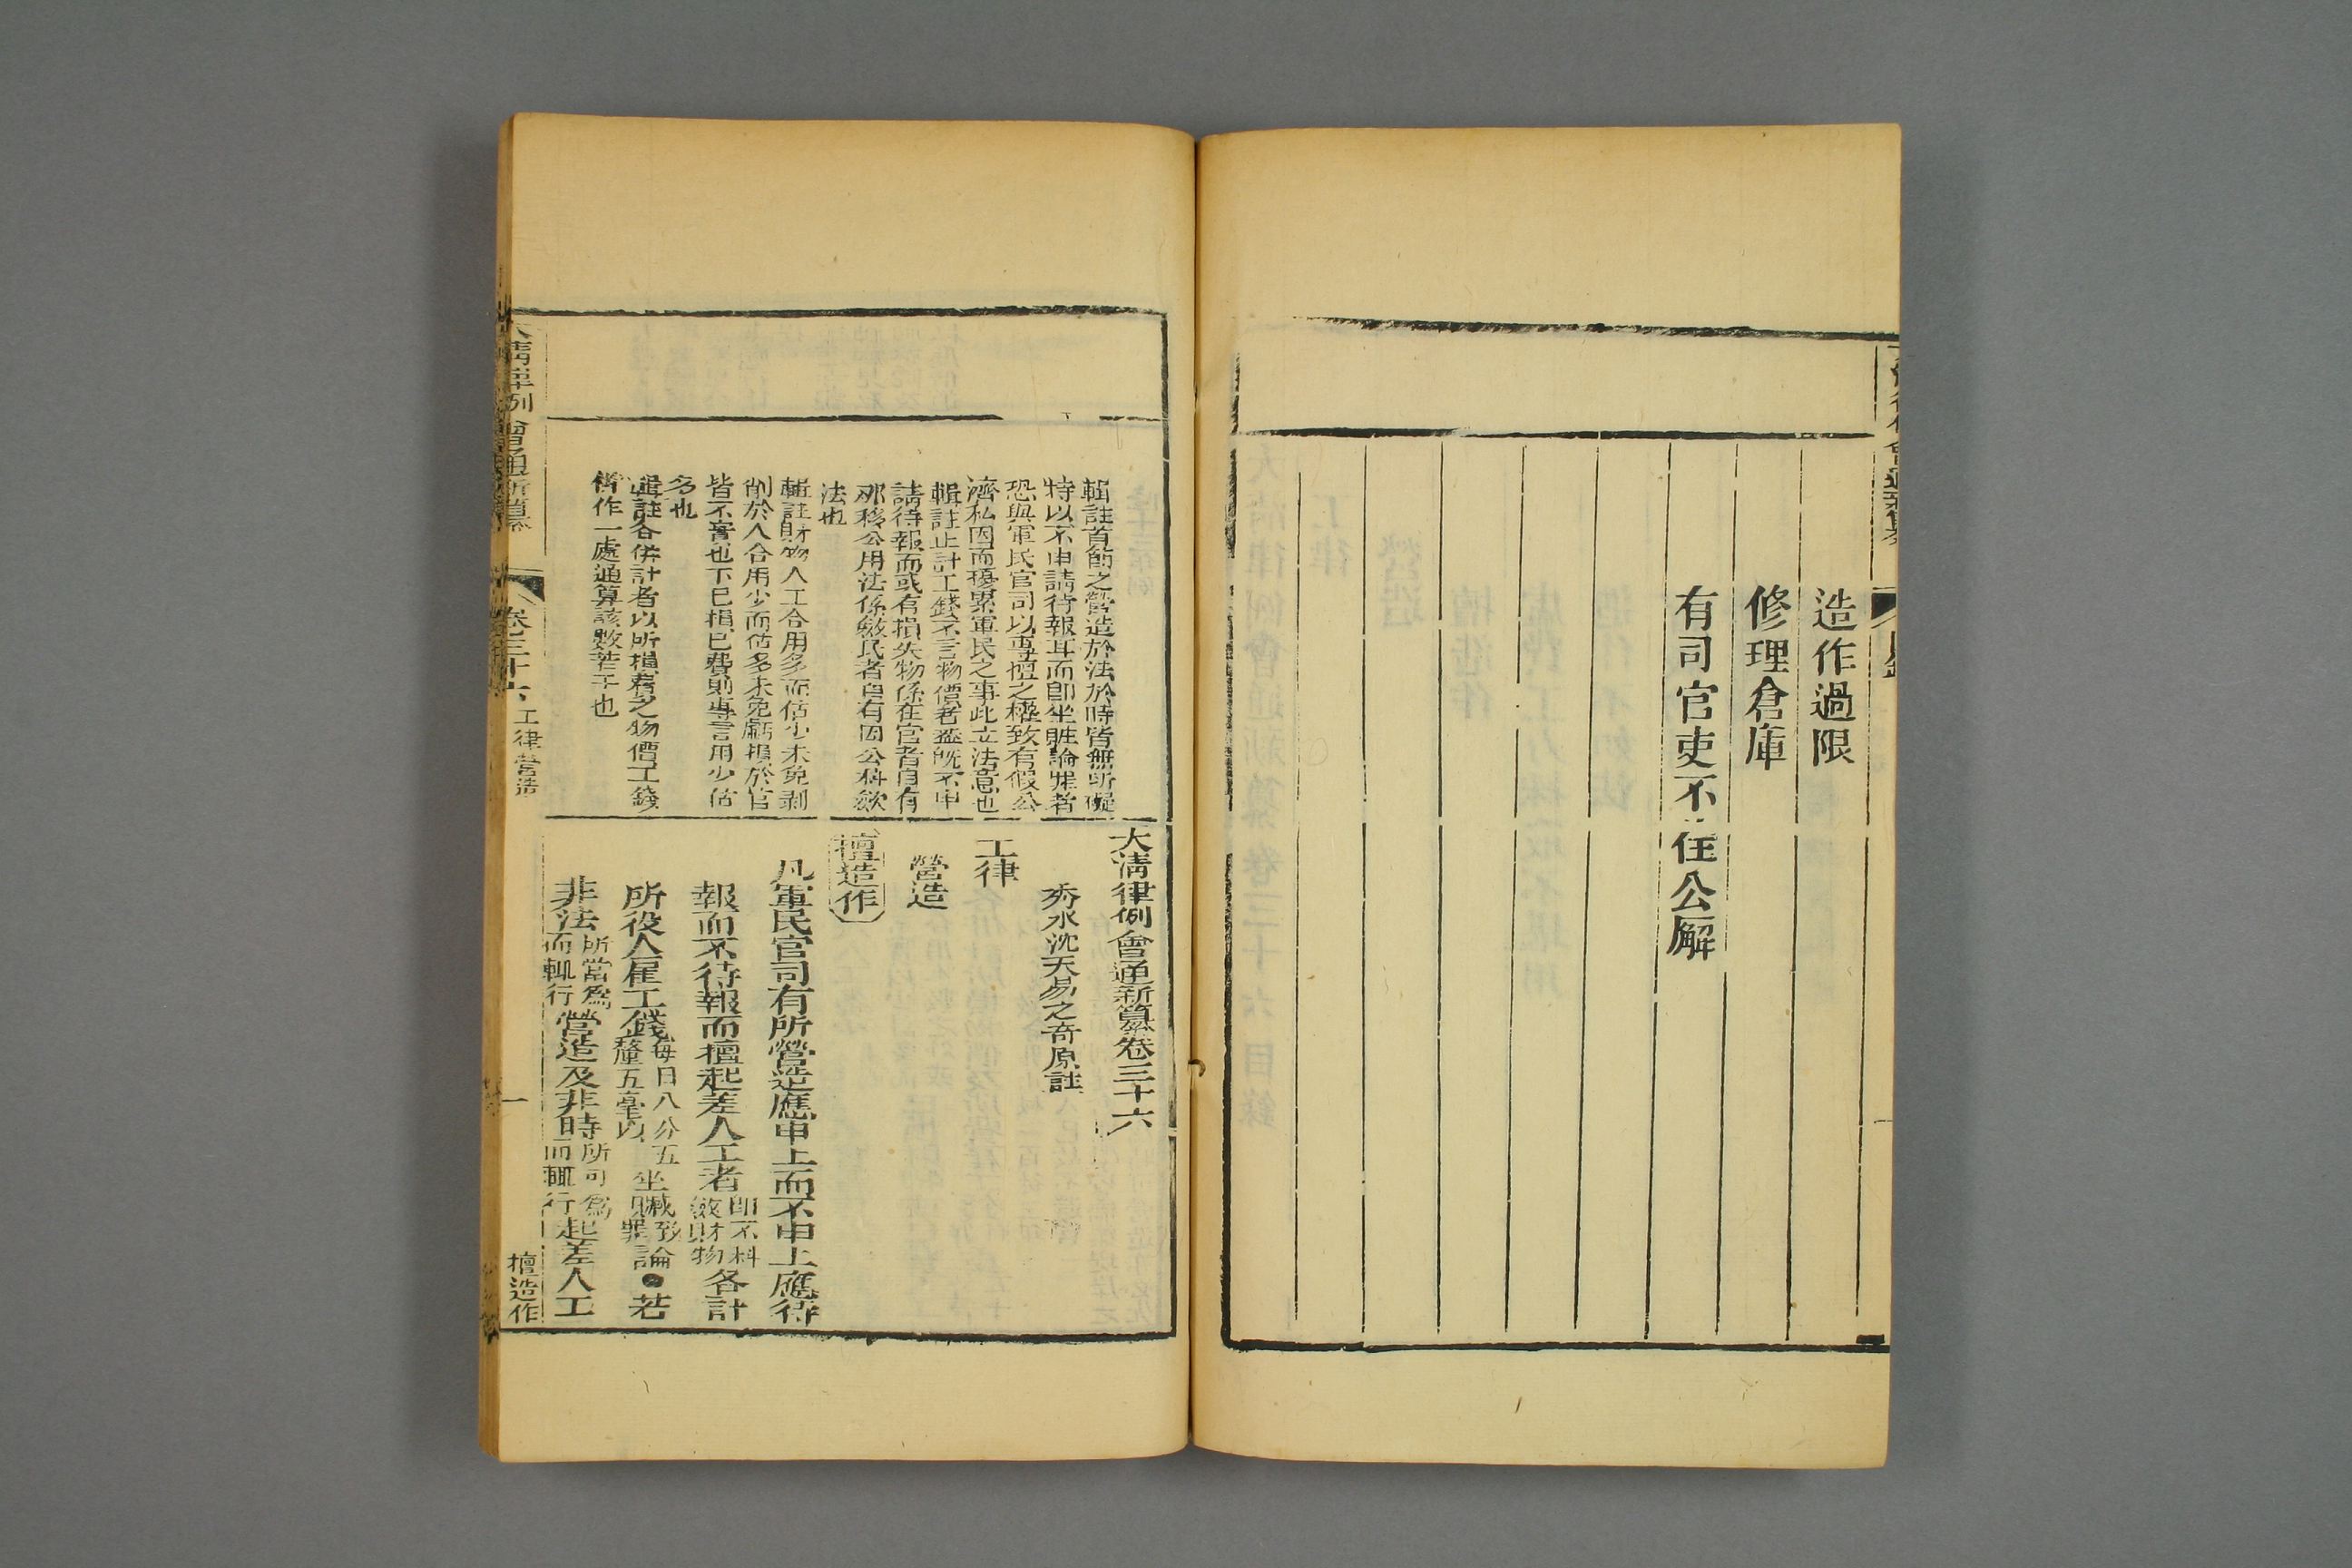 造作過限
修理倉庫
有司官吏不住公廨
輯註首節之營造於法於時皆無所礙
特以不申請待報耳而卽坐賍論罪者
恐與軍民官司以專擅之權致有假公
濟私因而擾累軍民之事此立法意也
輯註止計工錢不言物價者葢旣不申
請待報而或有損失物係在官者自有
那移公用法係斂民者自有因公科斂
法也
輯註財物人工合用多而估少未免剥
削於人合用少而估多未免虧損於官
皆不實也下已損已費則專言用少估
多也
輯註各倂計者以所損費之物價工錢
倂作一處通算該數若干也
大清律例會通新纂卷三十六
秀水沈天易之奇原註
工律
營造
擅造作
凡軍民官司有所營造應申上而不申上應待
報而不待報而擅起差人工者卽不科斂財物各計
所役人雇工錢每日八分五釐五毫以坐贓致罪論●若
非法所當爲而輒行營造及非時所可爲而輒行起差人工
大清律例會通新纂
卷三十六
工律營造
一
擅造作